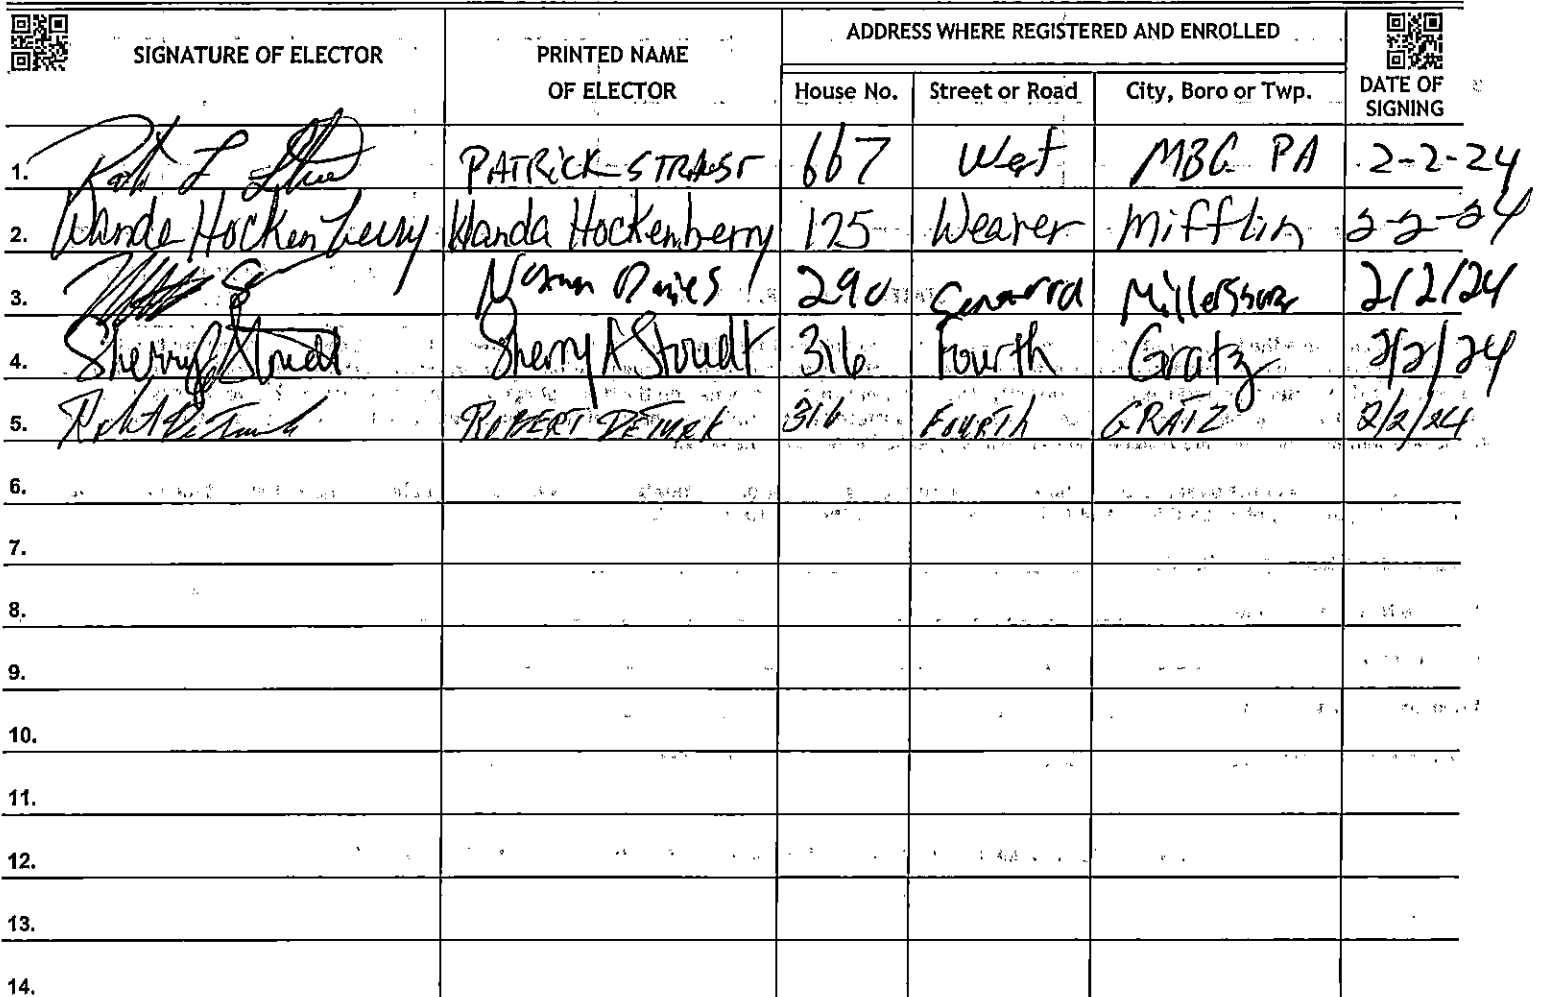 ADDRESS WHERE REGISTERED AND ENROLLED
SIGNATURE OF ELECTOR PRINTED NAME OF ELECTOR House No. Street or Road City, Boro or Twp. DATE OF SIGNING
1. PATRICK STRAUST 667 West MBG PA 2-2-24
2. Wanda Hockenberry Wanda Hockenberry 175 Weaver Mifflin 2-2-24
3. Davies 290 2/2/24
4. Sherry A Stroudt Sherry A Stroudt 316 Fourth Gratz 2/2/24
5. Robert DeTurk ROBERT DETURK 316 FOURTH GRATZ 2/2/24
6.
7.
8.
9.
10.
11.
12.
13.
14.